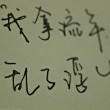 "我拿流年
乱了浮